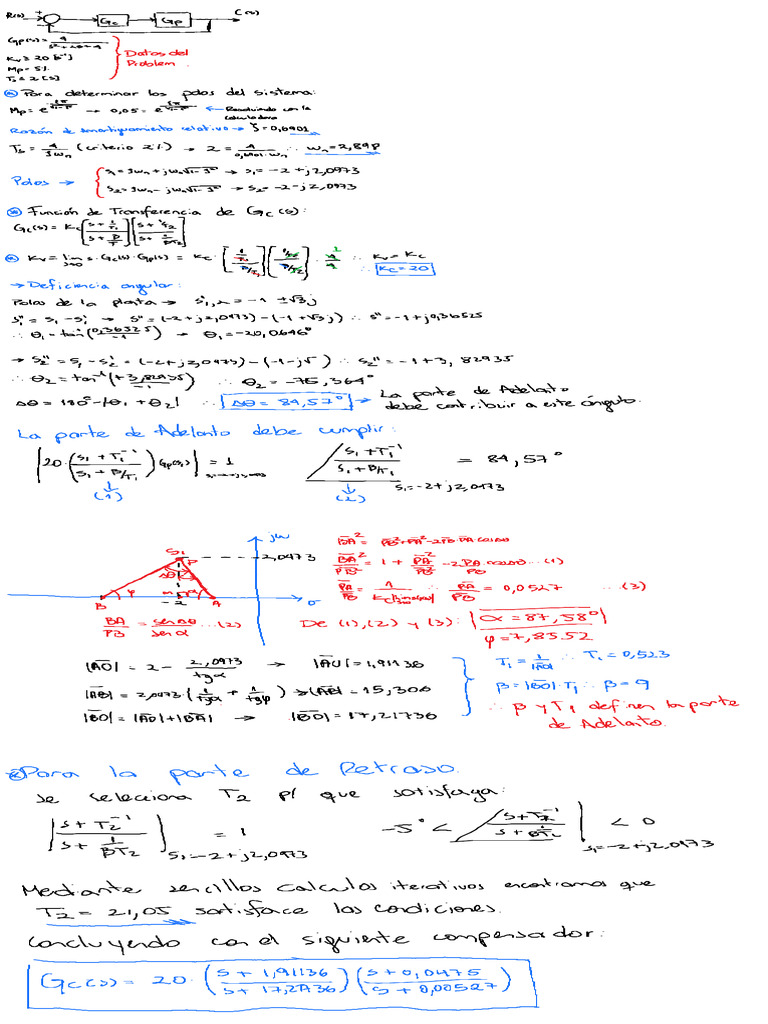 R(s) + - Gc Gp C(s)
Gp(s) = 4 / s²+2s+4
Kv ≥ 20 [s⁻¹]
Mp = 5%
Ts = 2 [s]
Datos del
Problem.
Para determinar los polos del sistema:
→ 0,05 = ← Resolviendo con la
calculadora
Razón de amortiguamiento relativo → ζ = 0,6901
Ts = 4/ζωn (criterio 2%) → 2 = 4/0,6901·ωn ∴ ωn = 2,898
Polos →
s1 = ζωn + jωn√1-ζ² → s1 = -2 + j2,0973
s2 = ζωn - jωn√1-ζ² → s2 = -2 - j2,0973
Función de Transferencia de Gc(s):
Gc(s) = Kc [s + 1/T1 / s + β/T1] [s + 1/T2 / s + 1/βT2]
Kv = lim s→0 s·Gc(s)·Gp(s) = Kc · [1/T1 / β/T1] [1/T2 / 1/βT2] · 4/4 ∴ Kv = Kc
∴ Kc = 20
→ Deficiencia angular:
Polos de la planta → s1,2 = -1 ± √3j
s1'' = s1 - s1' → s'' = (-2 + j2,0973) - (-1 + √3j) ∴ s'' = -1 + j0,36525
∴ θ1 = tan⁻¹(0,36525/-1) → θ1 = -20,0646°
→ s2'' = s1 - s2' = (-2 + j2,0973) - (-1 - j√) ∴ s2'' = -1 + 3,82935
∴ θ2 = tan⁻¹(+3,82935/-1) ∴ θ2 = -75,364°
Δθ = 180° - |θ1 + θ2| ∴ Δθ = 84,57° → La parte de Adelanto
debe contribuir a este ángulo.
La parte de Adelanto debe cumplir:
|20·(s1 + T1⁻¹ / s1 + β/T1) Gp(s1)| = 1
(1)
s1 + T1⁻¹ / s1 + β/T1 s1 = -2 + j2,0973 = 84,57°
(2)
jω
S1
P
2,0973
Δθ
φ
α
B
-2
A
σ
BA/PB = senΔθ/senα ... (2)
BA²/PB² = 1 + PA²/PB² - 2 PA/PB cosΔθ ... (1)
PA/PB = 0,0527 ... (3)
De (1), (2) y (3): α = 87,58°
φ = 7,8552
|AO| = 2 - 2,0973/tgα → |AO| = 1,91136
|AB| = 2,0973·(1/tgα + 1/tgφ) → |AB| = 15,306
|BO| = |AO| + |BA| → |BO| = 17,21736
T1 = 1/|AO| ∴ T1 = 0,523
β = |BO|·T1 ∴ β = 9
∴ β y T1 definen la parte
de Adelanto.
Para la parte de Retraso.
se selecciona T2 p/ que satisfaga:
|s + T2⁻¹ / s + 1/βT2| s1 = -2 + j2,0973 = 1
-5° < s + T2⁻¹ / s + 1/βT2 | s1 = -2 + j2,0973 < 0
Mediante sencillos calculos iterativos encontramos que
T2 = 21,05 satisface las condiciones.
Concluyendo con el siguiente compensador:
Gc(s) = 20·(s + 1,91136 / s + 17,21736)(s + 0,0475 / s + 0,00527)